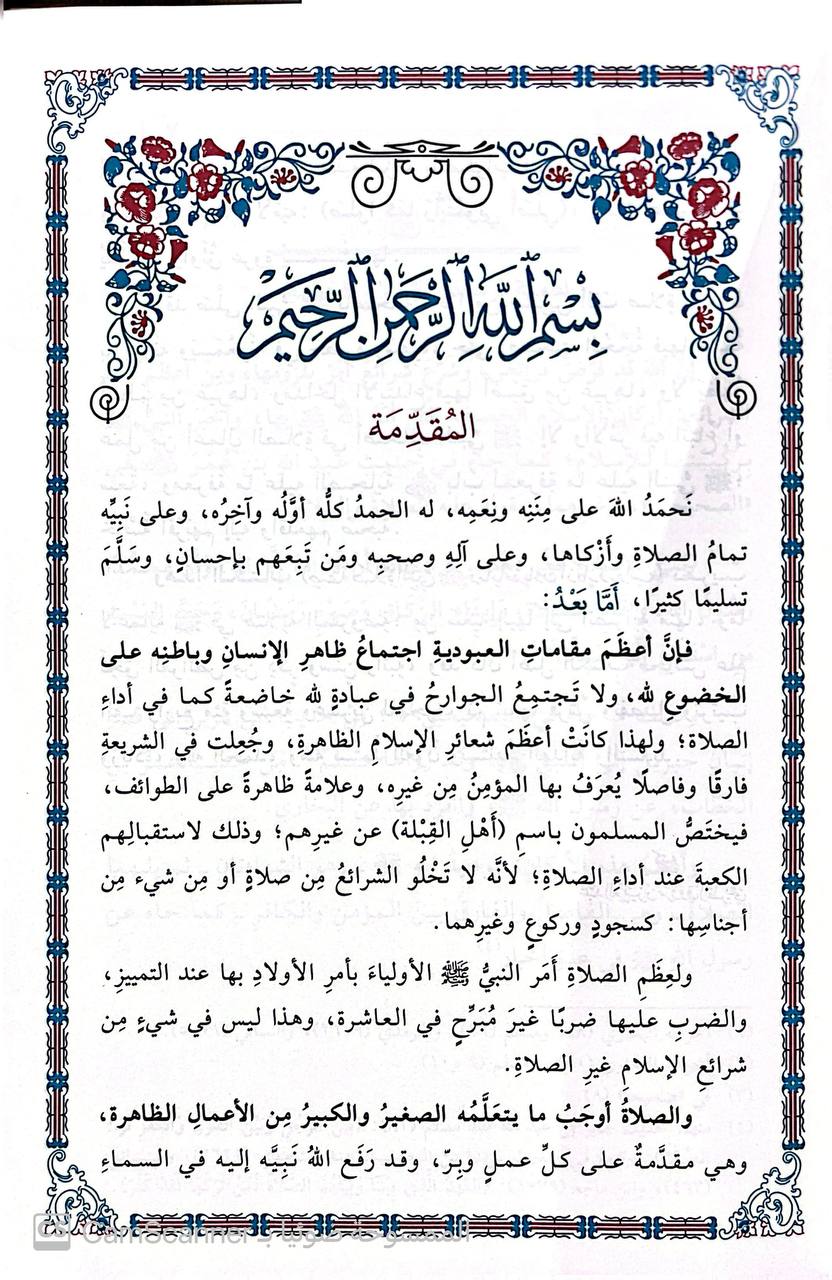 بِسْمِ ٱللَّهِ ٱلرَّحْمَٰنِ ٱلرَّحِيمِ
المُقَدِّمَة
نَحمَدُ اللهَ على مِنَنِه ونِعَمِه، له الحمدُ كلُّه أوَّلُه وآخِرُه، وعلى نَبِيِّه
تمامُ الصلاةِ وأَزْكاها، وعلى آلِهِ وصحبِه ومَن تَبِعَهم بإحسانٍ، وسَلَّمَ
تسليمًا كثيرًا، أَمَّا بَعْدُ:
فإنَّ أعظَمَ مقاماتِ العبوديةِ اجتماعُ ظاهرِ الإنسانِ وباطنِه على
الخضوعِ لله، ولا تَجتمِعُ الجوارحُ في عبادةٍ لله خاضعةً كما في أداءِ
الصلاة؛ ولهذا كانَتْ أعظَمَ شعائرِ الإسلامِ الظاهرةِ، وجُعِلت في الشريعةِ
فارقًا وفاصلًا يُعرَفُ بها المؤمِنُ مِن غيرِه، وعلامةً ظاهرةً على الطوائف،
فيختَصُّ المسلمون باسمِ (أَهْلِ القِبْلة) عن غيرِهم؛ وذلك لاستقبالِهم
الكعبةَ عند أداءِ الصلاةِ؛ لأنَّه لا تَخْلُو الشرائعُ مِن صلاةٍ أو مِن شيء مِن
أجناسِها: كسجودٍ وركوعٍ وغيرِهما.
ولعِظَمِ الصلاةِ أمَر النبيُّ ﷺ الأولياءَ بأمرِ الأولادِ بها عند التمييزِ،
والضربِ عليها ضربًا غيرَ مُبَرِّحٍ في العاشرة، وهذا ليس في شيءٍ مِن
شرائعِ الإسلامِ غيرِ الصلاةِ.
والصلاةُ أوجَبُ ما يتعَلَّمُه الصغيرُ والكبيرُ مِن الأعمالِ الظاهرة،
وهي مقدَّمةٌ على كلِّ عملٍ وبِرٍّ، وقد رَفَع اللهُ نَبِيَّه إليه في السماءِ
CS الممسوحة ضوئيا بـ CamScanner